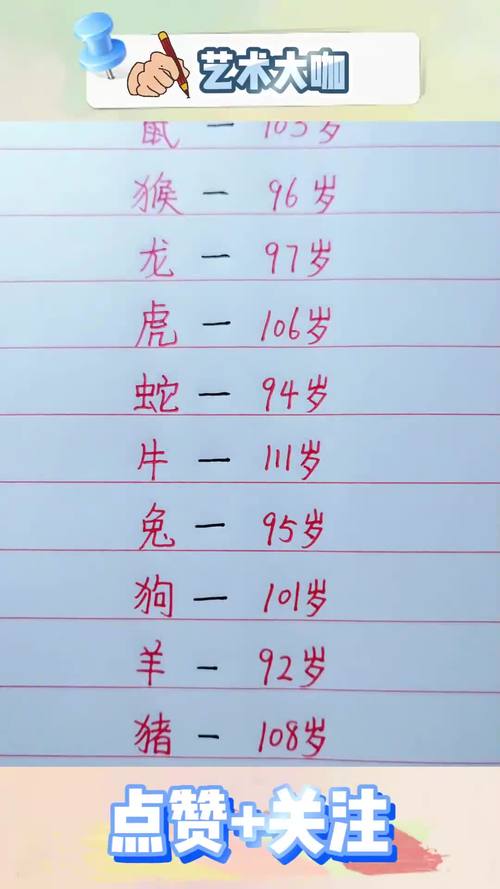 艺术大咖
鼠 — 103岁
猴 — 96岁
龙 — 97岁
虎 — 106岁
蛇 — 94岁
牛 — 111岁
兔 — 95岁
狗 — 101岁
羊 — 92岁
猪 — 108岁
点赞+关注